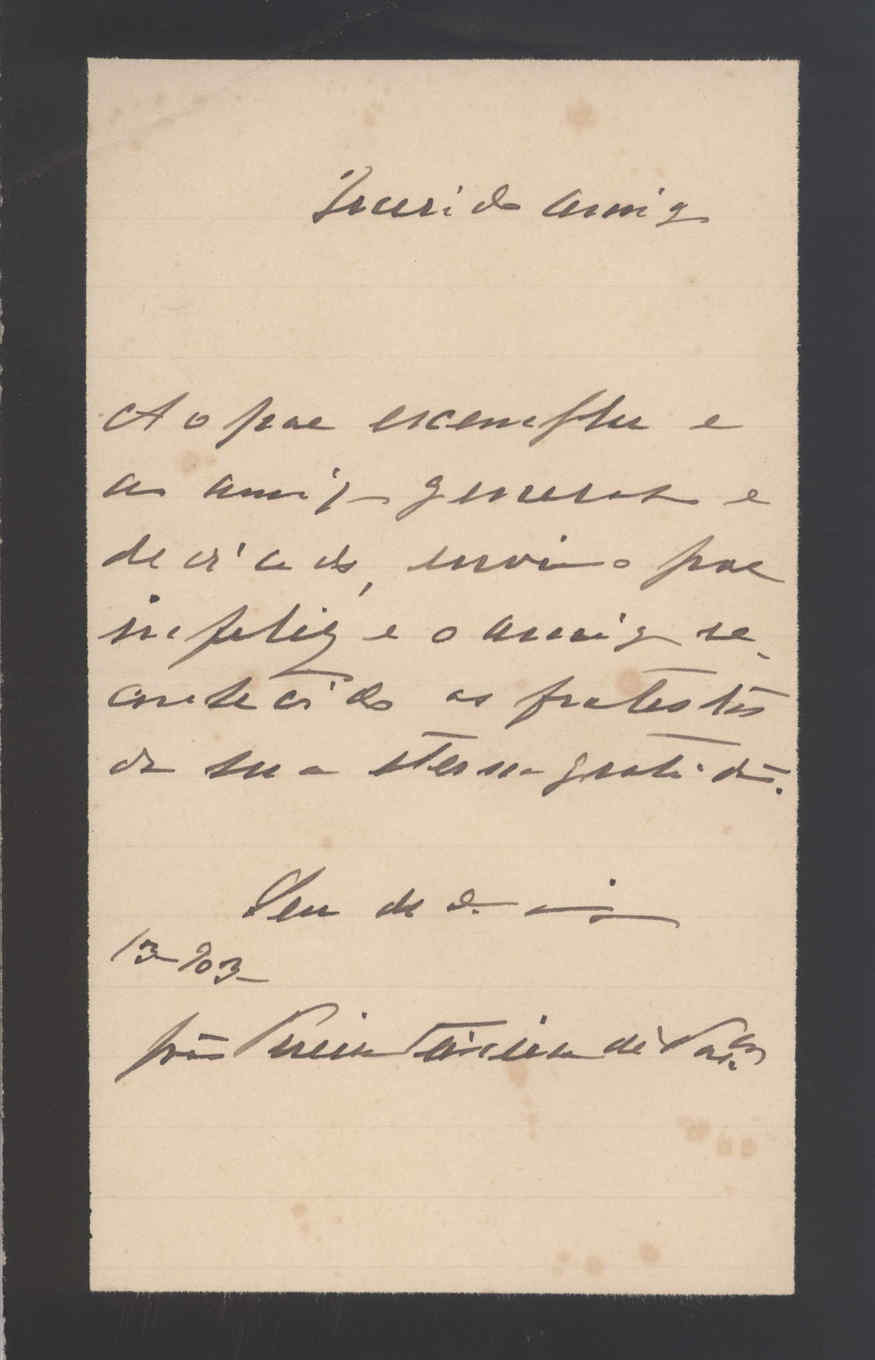 Querido amigo
Ao pae exemplar e
ao amigo generoso e
dedicado, envia o pae
infeliz e o amigo re-
conhecido os protestos
da sua eterna gratidão.
Seu dedo amigo
13-703-
João Pereira Teixeira de Vas.cos